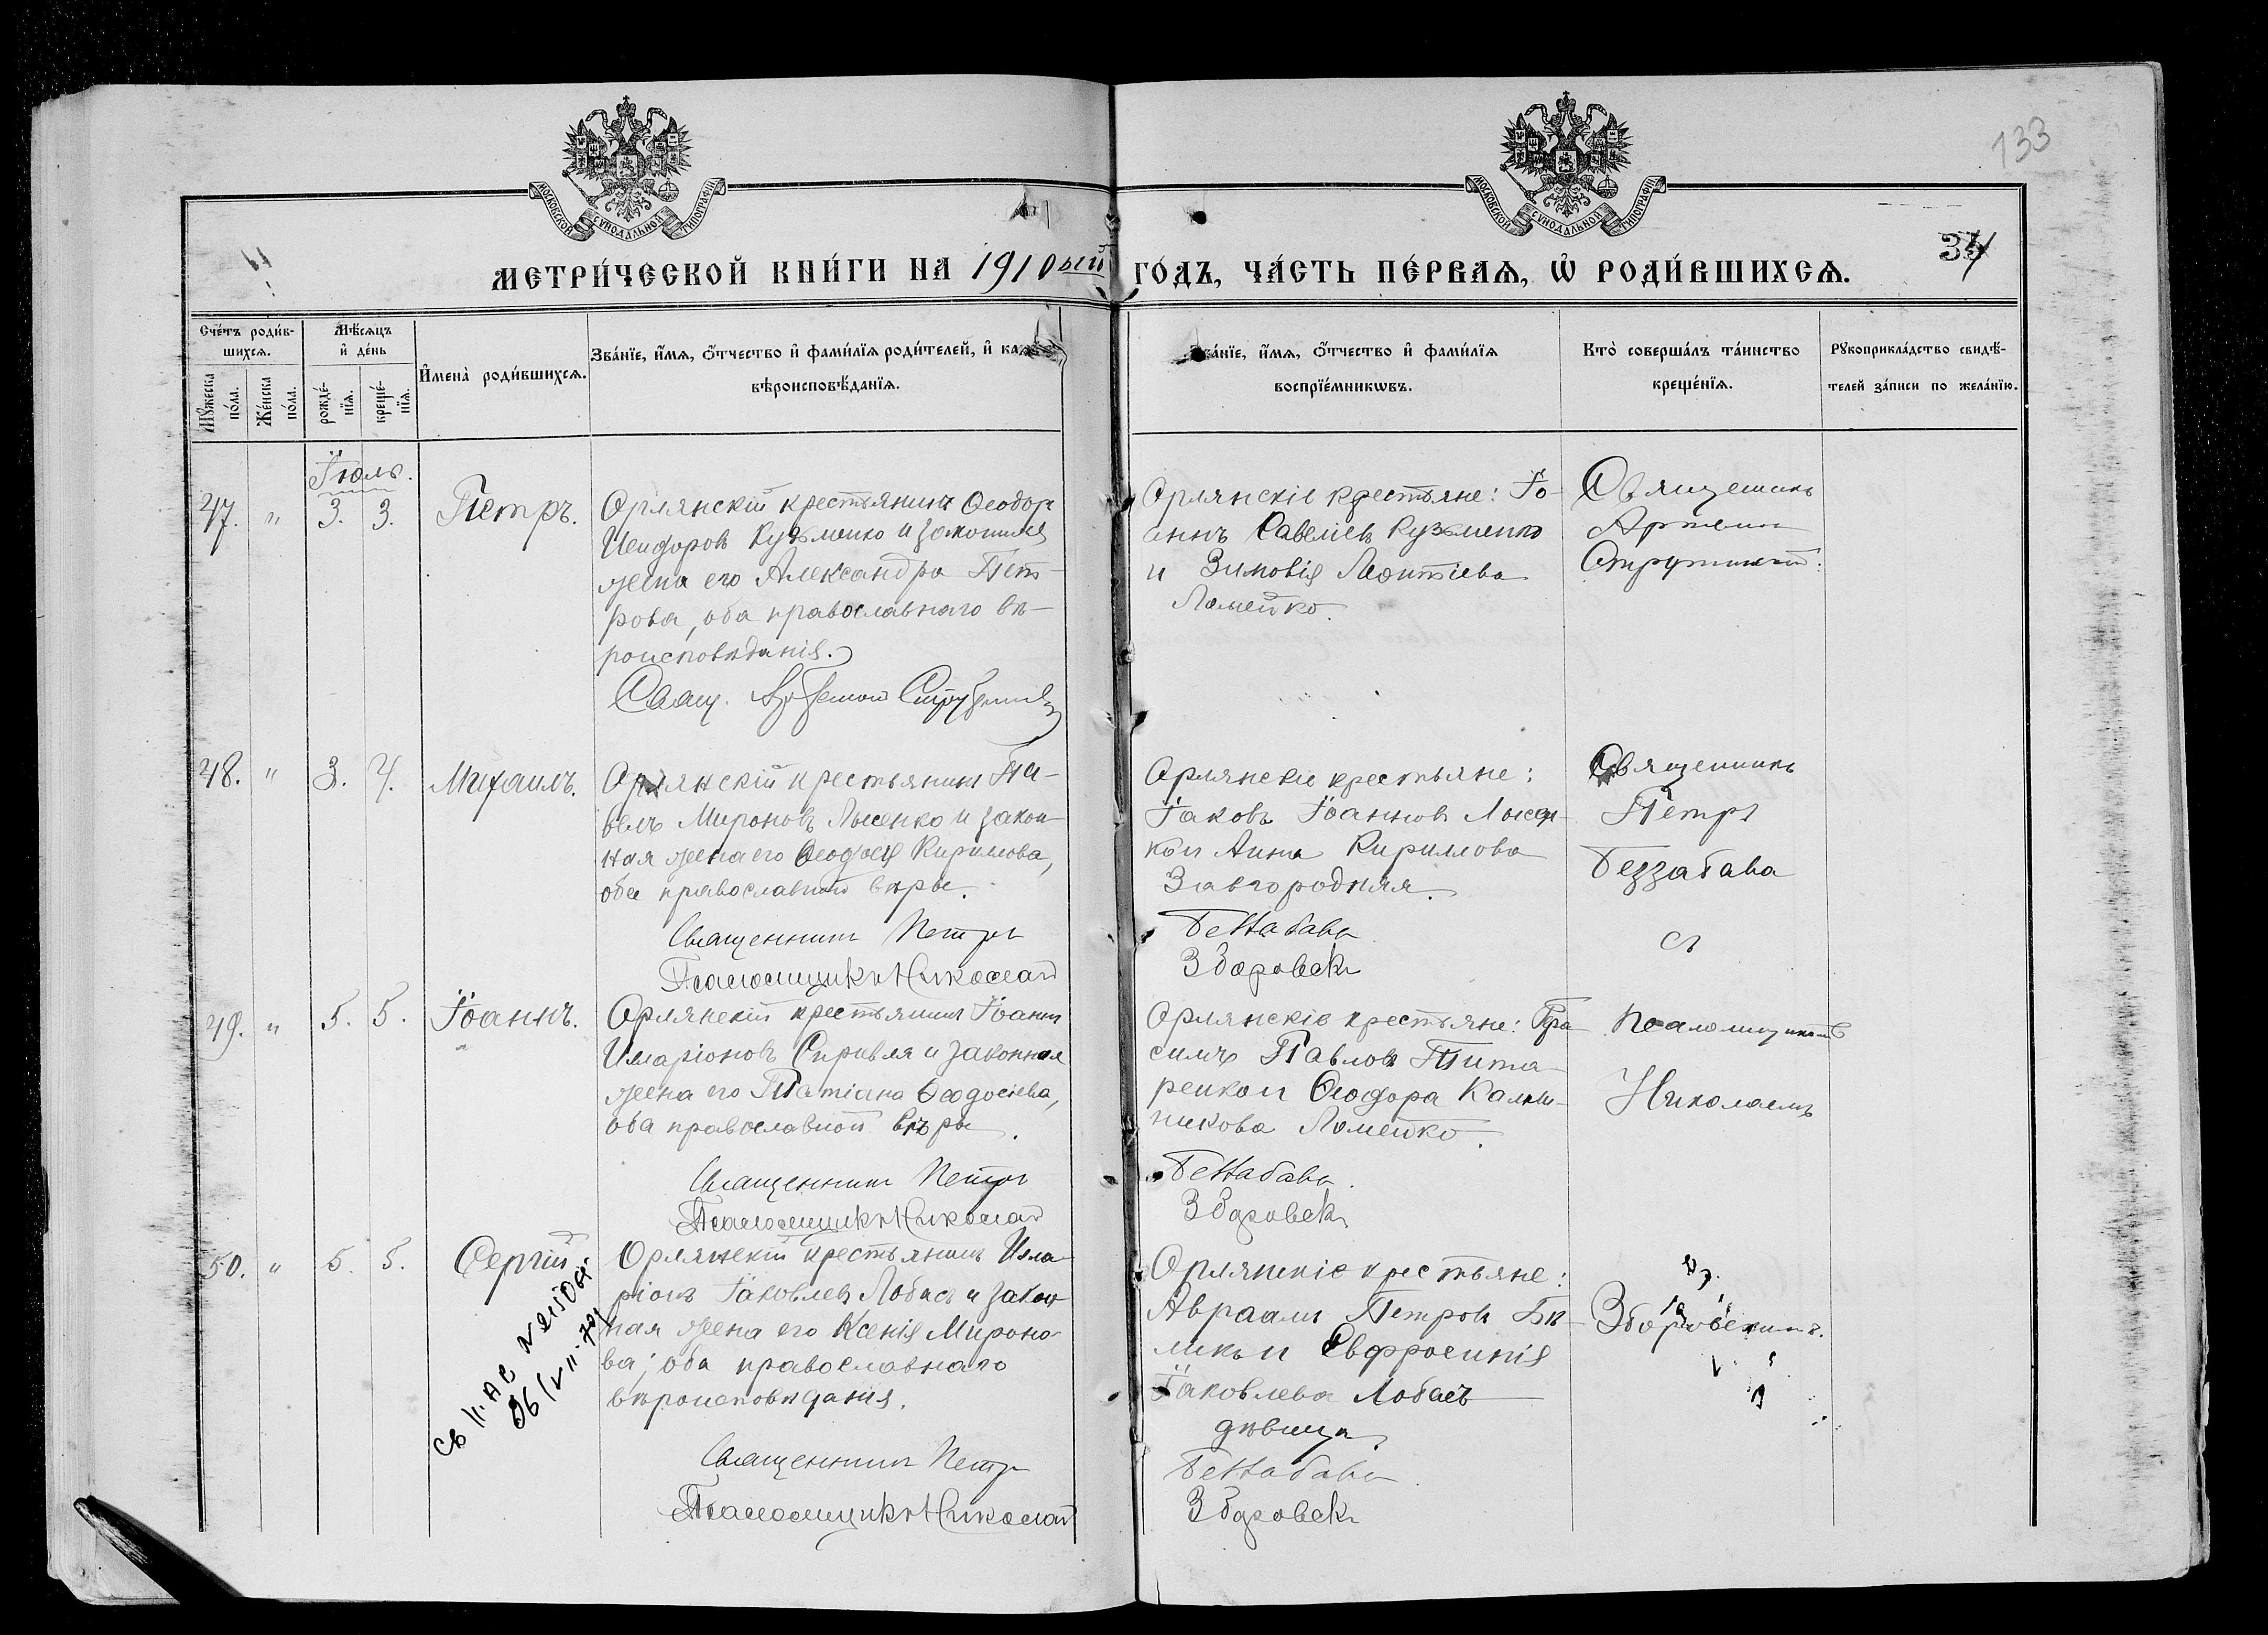 133
МОСКОВСКОЙ СѴНОДАЛЬНОЙ ТИПОГРАФІИ
МОСКОВСКОЙ СѴНОДАЛЬНОЙ ТИПОГРАФІИ
34
МЕТРИ́ЧЕСКОЙ КНИ́ГИ НА 1910ый ГО́ДЪ, ЧА́СТЬ ПЕ́РВАѦ, Ѡ҆ РОДИ́ВШИХСѦ.
Сче́тъ роди́в-
шихсѧ.
Мꙋ́жеска по́ла.
Же́нска по́ла.
Мѣ́сѧцъ
и҆ де́нь
рожде́-нїѧ.
креще́-нїѧ.
И҆мена̀ роди́вшихсѧ.
Зва́нїе, и҆́мѧ, ѻ҆́тчество и҆ фами́лїѧ роди́телей, и҆
вѣроисповѣ́данїѧ.
Зва́нїе, и҆́мѧ, ѻ҆́тчество и҆ фами́лїѧ
воспрїе́мникѡвъ.
Кто̀ соверша́лъ та́инство
креще́нїѧ.
Рꙋкоприкла́дство свидѣ́-
телей за́писи по жела́нїю.
Іюль.
47. " 3. 3. Петръ.
Орлянскій крестьянинъ Ѳеодоръ
Исидоровъ Кузьменко и законная
жена его Александра Пет-
рова, оба православнаго вѣ-
роисповѣданія.
Свящ. Артемон Струтинскій
Орлянскіе крестьяне: Іо-
аннъ Савеліевъ Кузьменко
и Зиновія Леонтіева
Ломейко.
Священникъ
Артемон
Струтинскій.
48. " 3. 4. Михаилъ.
Орлянскій крестьянинъ Па-
велъ Мироновъ Лысенко и закон-
ная жена его Ѳеодосія Кириллова,
оба православной вѣры.
Священникъ Петръ
Псаломщикъ Николай
Орлянскіе крестьяне:
Іаковъ Іоанновъ Лысен-
ко и Анна Кириллова
Завгородняя.
Беззабава
Зборовскі
Священникъ
Петръ
Беззабава
съ
49. " 5. 5. Іоаннъ.
Орлянскій крестьянинъ Іоаннъ
Иларіоновъ Спривля и законная
жена его Татіана Ѳеодосіева,
оба православной вѣры.
Священникъ Петръ
Псаломщикъ Николай
Орлянскіе крестьяне: Гера-
симъ Павловъ Тита-
ренко и Ѳеодора Калин-
никова Ломейко.
Беззабава
Зборовскі
Псаломщикомъ
Николаемъ
50. " 5. 5. Сергій.
Орлянскій крестьянинъ Ила-
ріонъ Іаковлевъ Лобасъ и закон-
ная жена его Ксенія Мироно-
ва, оба православнаго
вѣроисповѣданія.
Священникъ Петръ
Псаломщикъ Николай
Орлянскіе крестьяне:
Авраамъ Петровъ Бѣ-
ликъ и Евфросинія
Іаковлева Лобасъ
дѣвица.
Беззабава
Зборовскі
Зборовскимъ.